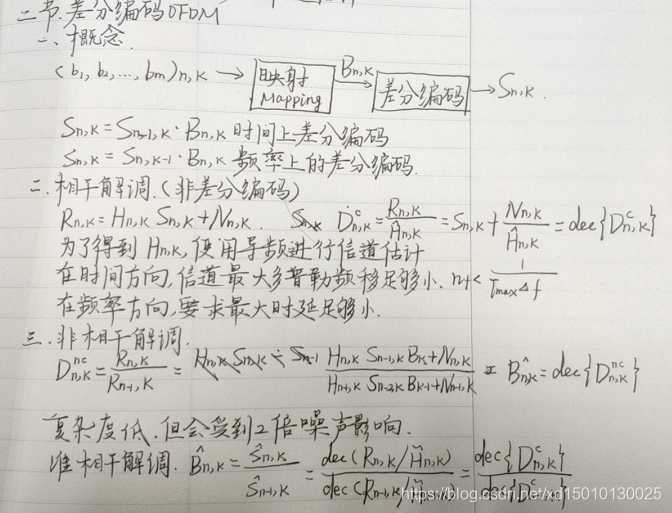 二节.差分编码OFDM
一、概念.
(b1, b2, ..., bm)n,k → 映射 Mapping Bn,k → 差分编码 → Sn,k.
Sn,k = Sn-1,k · Bn,k 时间上差分编码
Sn,k = Sn,k-1 · Bn,k 频率上的差分编码.
二.相干解调.(非差分编码)
Rn,k = Hn,k Sn,k + Nn,k. D^c n,k = Rn,k / Ĥn,k = Sn,k + Nn,k / Ĥn,k = dec{D^c n,k}
为了得到 Hn,k, 使用导频进行信道估计
在时间方向,信道最大多普勒频移足够小. nf < 1 / τmax Δf
在频率方向,要求最大时延足够小.
三.非相干解调.
D^nc n,k = Rn,k / Rn-1,k = Hn,k Sn-1,k Bk + Nn,k / Hn-1,k Sn-2,k Bk-1 + Nn-1,k B̂n,k = dec{D^nc n,k}
复杂度低.但会受到2倍噪声影响.
准相干解调. B̂n,k = Ŝn,k / Ŝn-1,k = dec(Rn,k / H̃n,k) / dec(Rn-1,k / H̃n-1,k) = dec{D^c n,k} / dec{D^c
https://blog.csdn.net/xd15010130025